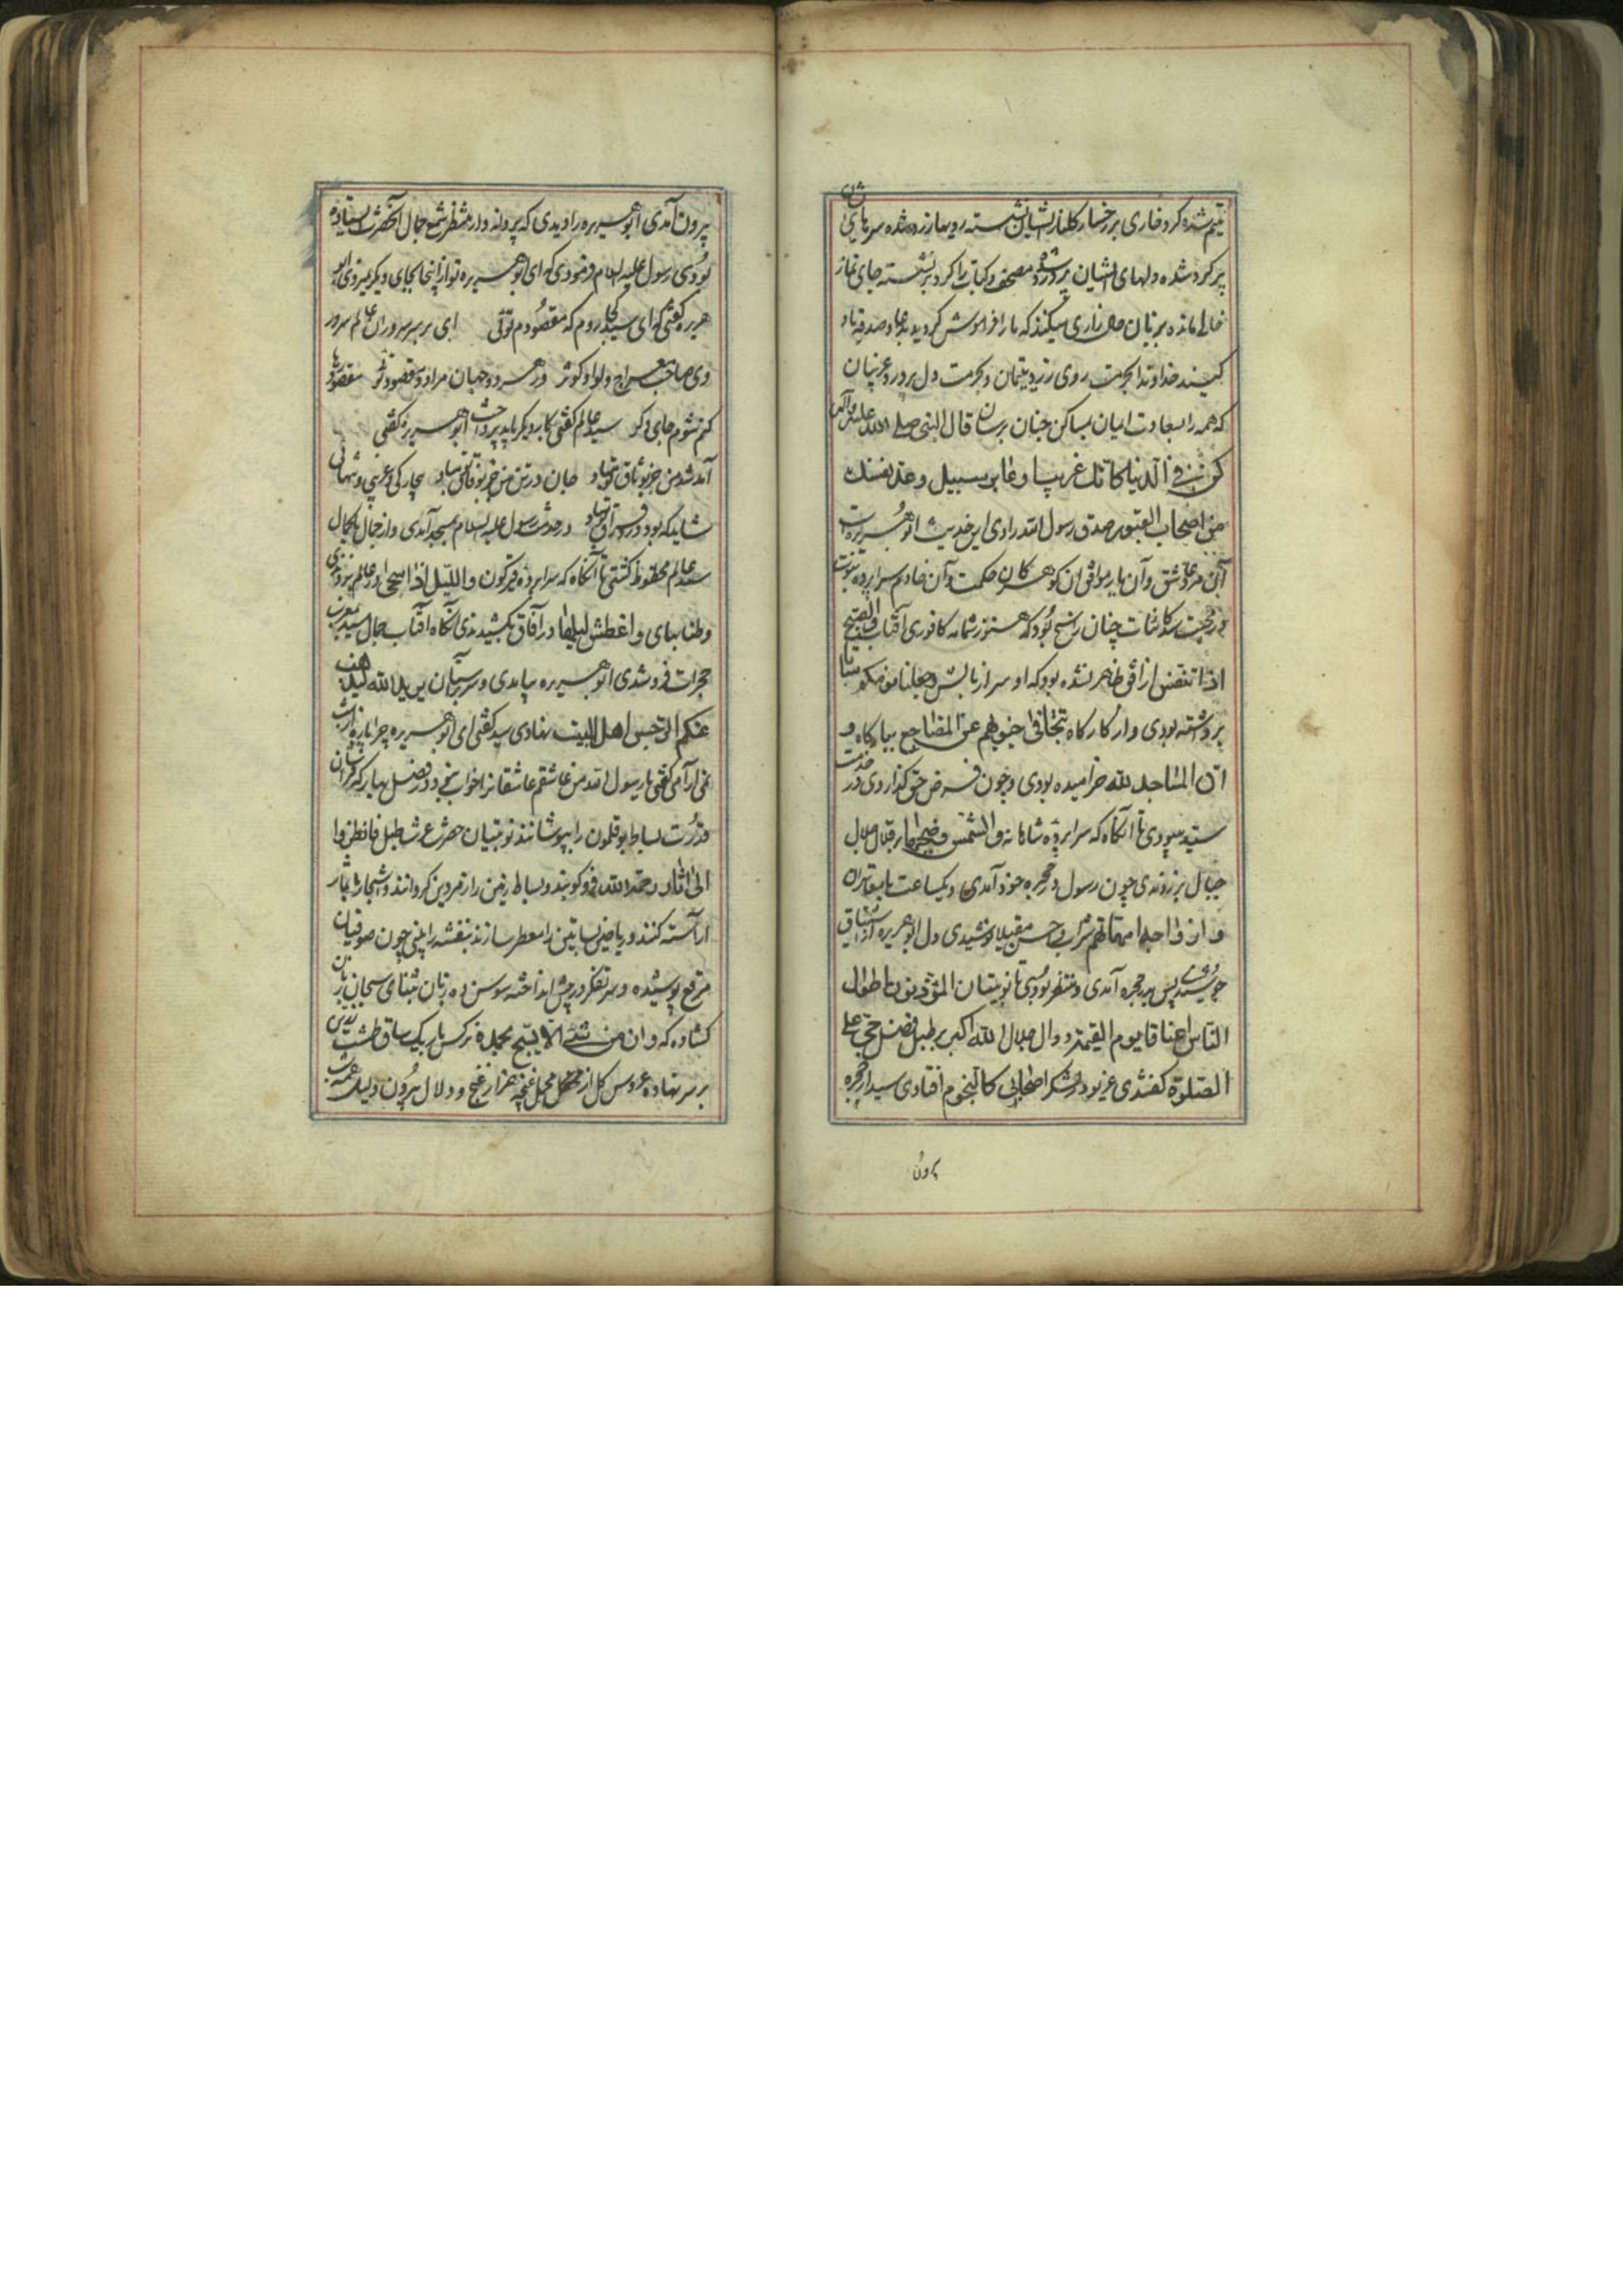 یتیم شده کرد خاری بر رخسار کلنار ایشان نشسته رویها زرد شده سرهای ایشان
پر کرد شده دلهای ایشان پر درد شده مصحف و کتاب را کرد بر نشسته جای نماز
خالی مانده بزبان حال زاری میکنند که ما را فراموش کردید بدعا و صدقه یاد
کنید خداوندا بحرمت روی زرد یتیمان و بحرمت دل پر درد غریبان
که همه را بسعادت ایمان بمساکن جنان برسان قال النبی صلی الله علیه و آله
کن فی الدنیا کانک غریب او عابر سبیل وعد نفسک
من اصحاب القبور صدق رسول الله راوی این حدیث ابوهریره است
آن مرد عاشق و آن یار موافق ان کوهر کان حکمت و آن خادم سراپرده نبوت
در محبت سید کاینات چنان راسخ بود که هنوز شمامه کافوری آفتاب والصبح
اذا تنفس از افق ظاهر نشده بود که او سر از بالش وجعلنا نومکم سباتا
بر داشته بودی و از کارگاه تتجافی جنوبهم عن المضاجع ببارکاه و
ان المساجد لله خرامیده بودی و چون فرض حق کذاردی در خدمت
سید ببودی تا آنکاه که سراپرده شاهانه والشمس وضحیها بر قلال
جبال بزدندی چون رسول در حجره خود آمدی و یکساعت با
وازواجه امهاتهم شراب حسن مقیلا نوشیدی دل ابوهریره از اشتیاق
جوشیدی پس بدر حجره آمدی و منتظر بودی تا نوبتیان المؤذنون اطول
الناس اعناقا یوم القیمة دوال جلال الله اکبر بر طبل فضل حی علی
الصلوة کفتندی غریو در لشکر اصحابی کالنجوم افتادی سید از حجره
برون
برون آمدی ابوهریره را دیدی که پروانه وار منتظر شمع جمال آنحضرت ایستاده
بودی رسول علیه السلام فرمودی که ای ابوهریره تو از اینجا بجای دیکر نمیروی ابو
هریره کفتی که ای سید کجا روم که مقصودم توئی ای بر سر سروران عالم سرور
وی صاحب معراج و لوا و کوثر در هر دو جهان مراد و مقصود توئی مقصود رها
کنم شوم جای دکر سید عالم کفتی کار دیکر باید پرداخت ابوهریره کفتی
آمد شد من جز بوثاق تو مباد جان در تن من جز بوفاق تو مباد بیچارکی و غریبی و تنهائی
شاید که بود ور فراق تو مباد در خدمت رسول علیه السلام بمسجد آمدی و از جمال باکمال
سید عالم محظوظ کشتی تا آنکاه که سراپرده قیرکون واللیل اذا سجی در عالم بزدندی
وطنابهای واغطش لیلها در آفاق بکشیدندی آنکاه آفتاب جمال سید بمغرب
حجرات فرو شدی ابوهریره بیامدی و سر بر آستان یرید الله لیذهب
عنکم الرجس اهل البیت نهادی سید کفتی ای ابوهریره چرا پاره از شب
نمی آرامی کفتی یا رسول الله من عاشقم عاشقانرا خواب نبود در فصل بهار که فراشان
قدرت بساط بوقلمون را بپوشانند نوبتیان حضرت عزت طبل فانظروا
الی اثار رحمة الله فرو کوبند و بساط زمین را زمردین کردانند و اشجار را بثمار
آراسته کنند و ریاض بساتین را معطر سازند بنفشه را بینی چون صوفیان
مرقع پوشیده و سر تفکر در پیش انداخته سوسن ده زبان بثنای سبحان زبان
کشاده که وان من شئ الا یسبح بحمده نرکس بر یک ساق طشت زرین
بر سر نهاده عروس کل از محفل غنچه بهزار غنج و دلال برون دوید همه شب